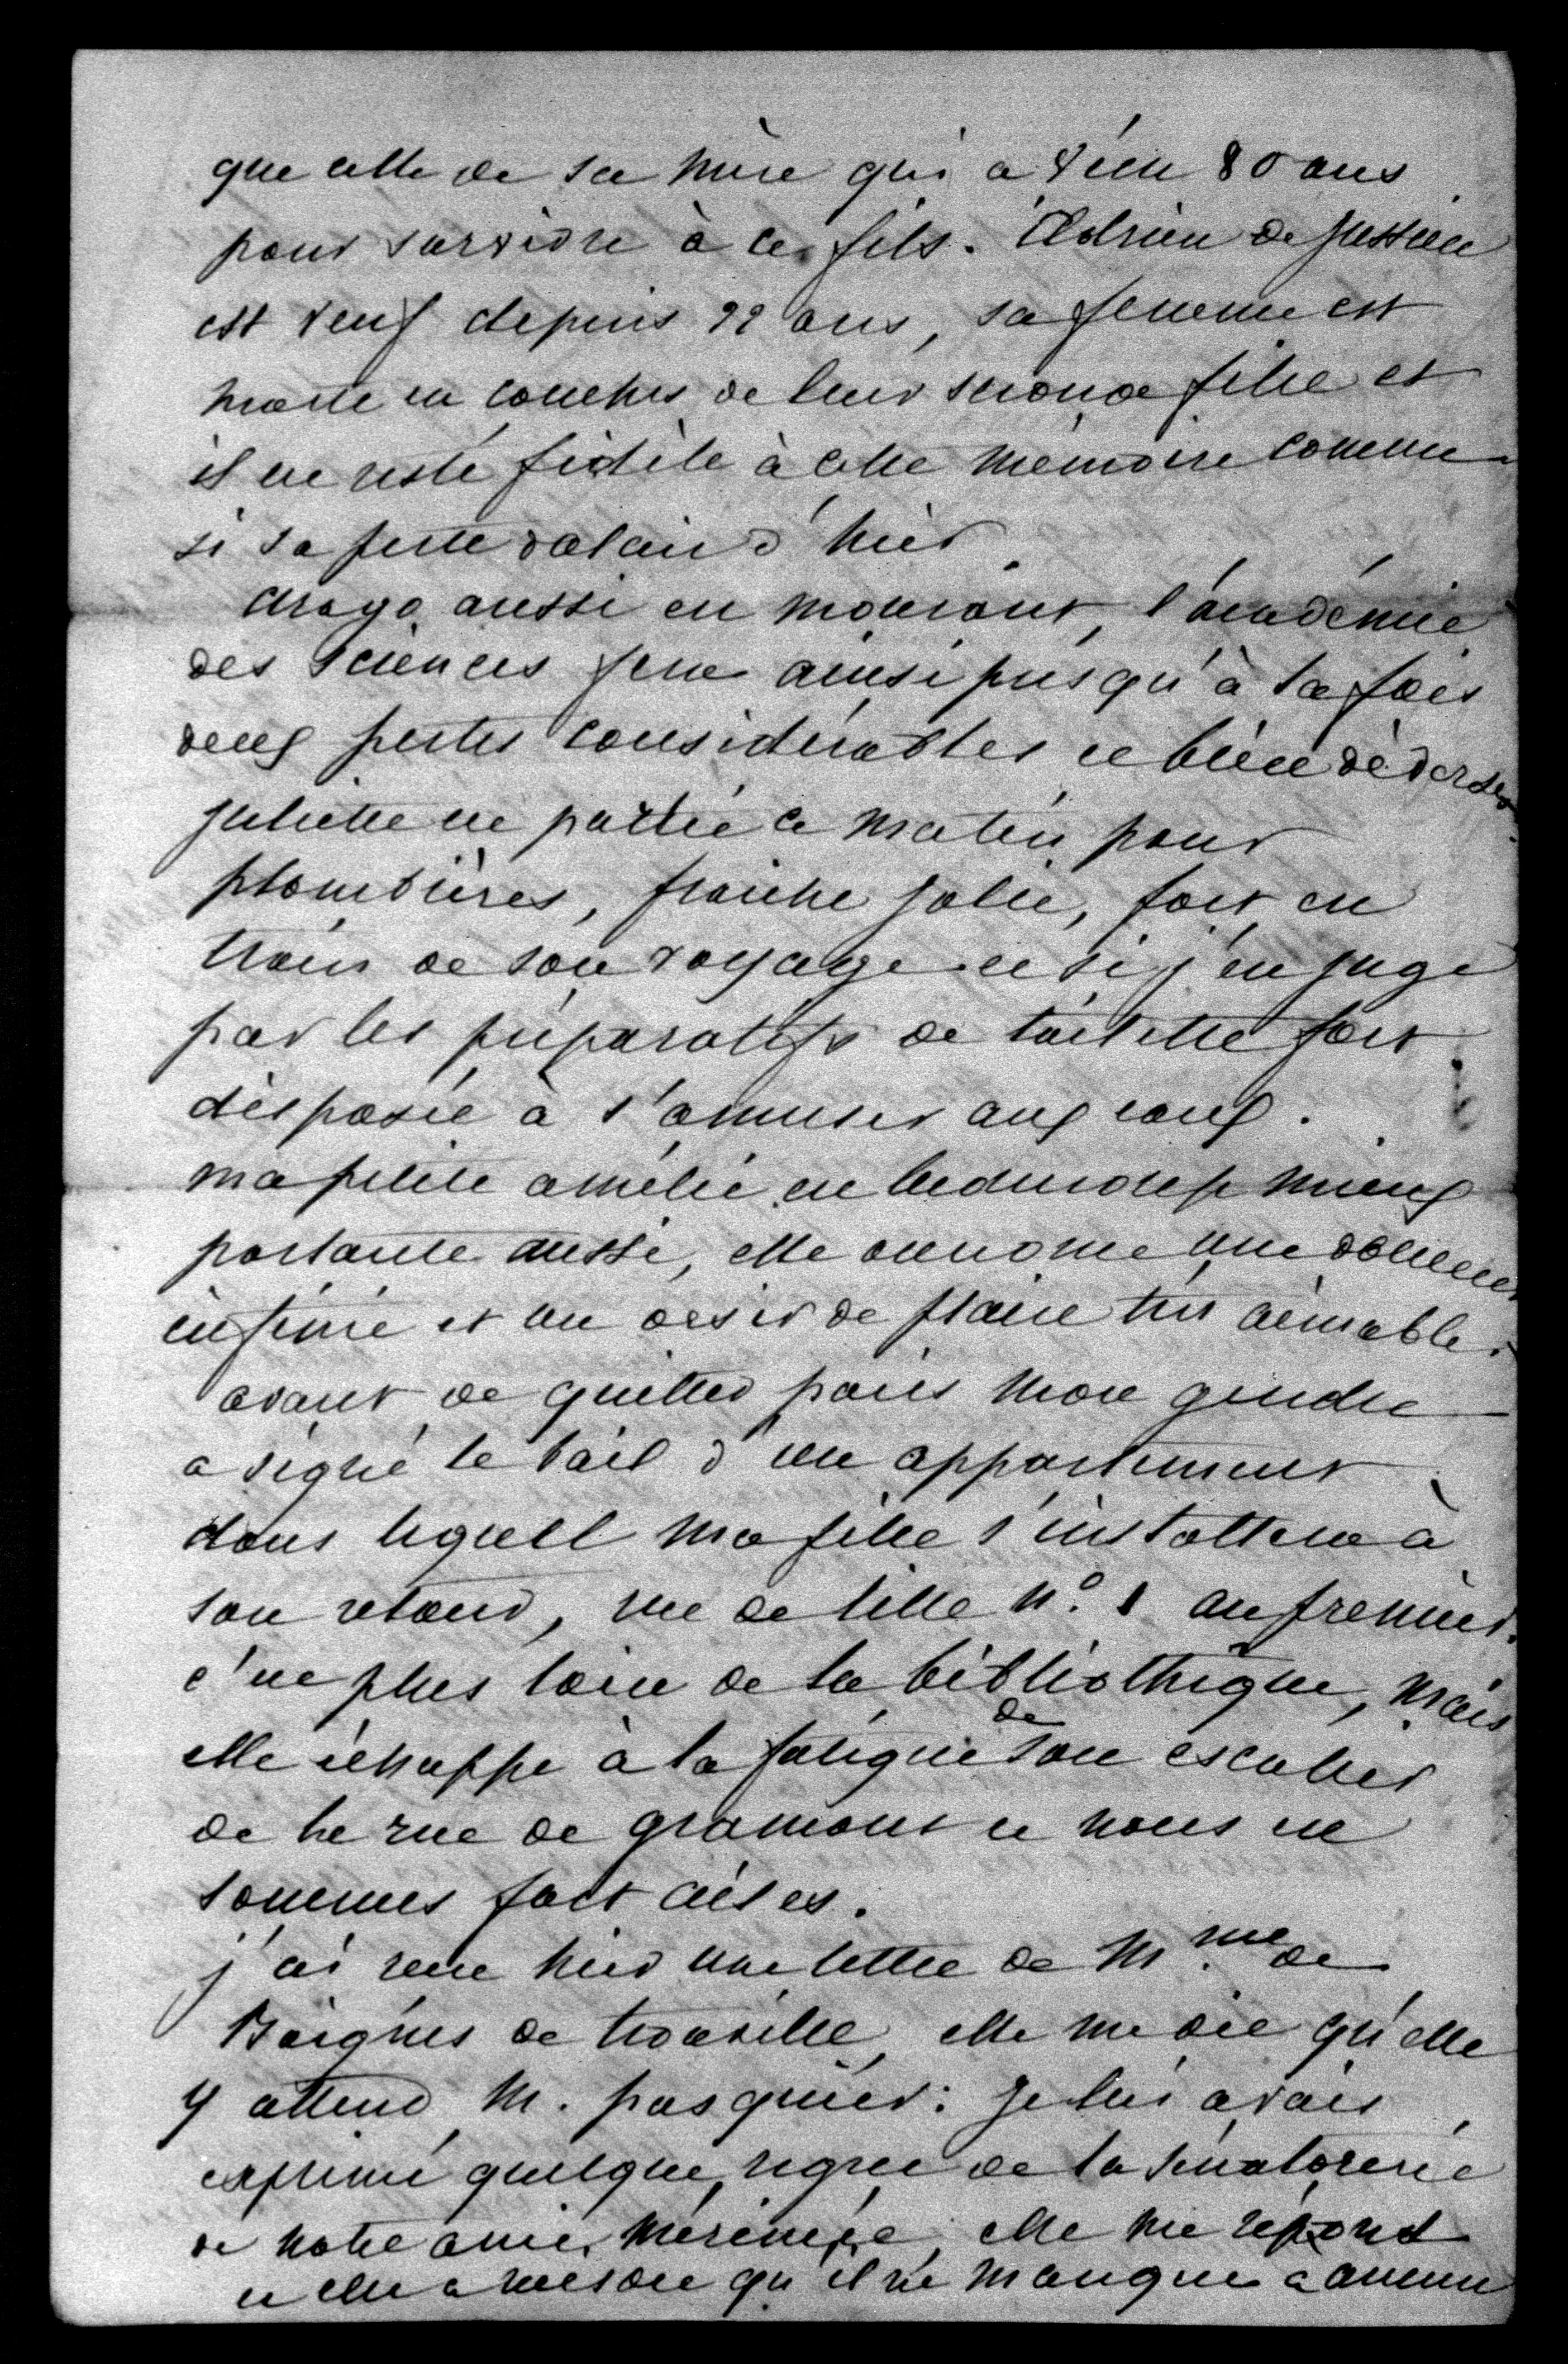 que celle de sa mère qui a vécu 80 ans
pour survivre à ce fils. Adrien de Jussieu
est veuf depuis 22 ans, sa femme est
morte en couches de leur seconde fille et
il est resté fidèle à cette mémoire comme
si sa perte datait d'hier
arago aussi est mourant, l'académie
des Sciences fera ainsi presqu'à la fois
deux pertes considérables et bien
juliette est partie ce matin pour
plombières, fraiche jolie, fort en
train de son voyage et si j'en juge
par les préparatifs de toilette fort
disposée à s'amuser aux eaux.
ma petite amélie est beaucoup mieux
portante aussi, elle une douceur
infinie et un desir de plaire très aimable.
avant de quitter paris mon gendre
a signé le bail d'un appartement
dans lequel ma fille s'installera à
son retour, rue de lille n.º 1 au premier.
c'est plus loin de la bibliothèque, mais
elle échappe à la fatigue de son escalier
de la rue de gramont et nous en
sommes fort aises.
j'ai reçu hier une lettre de M.me de
Boignes de trouville, elle me dit qu'elle
y attend M. pasquier: je lui avais
exprimé quelque regret de la sénatorerie
de notre ami mérimée, elle me répond
et elle a raison qu'il ne manque a aucun